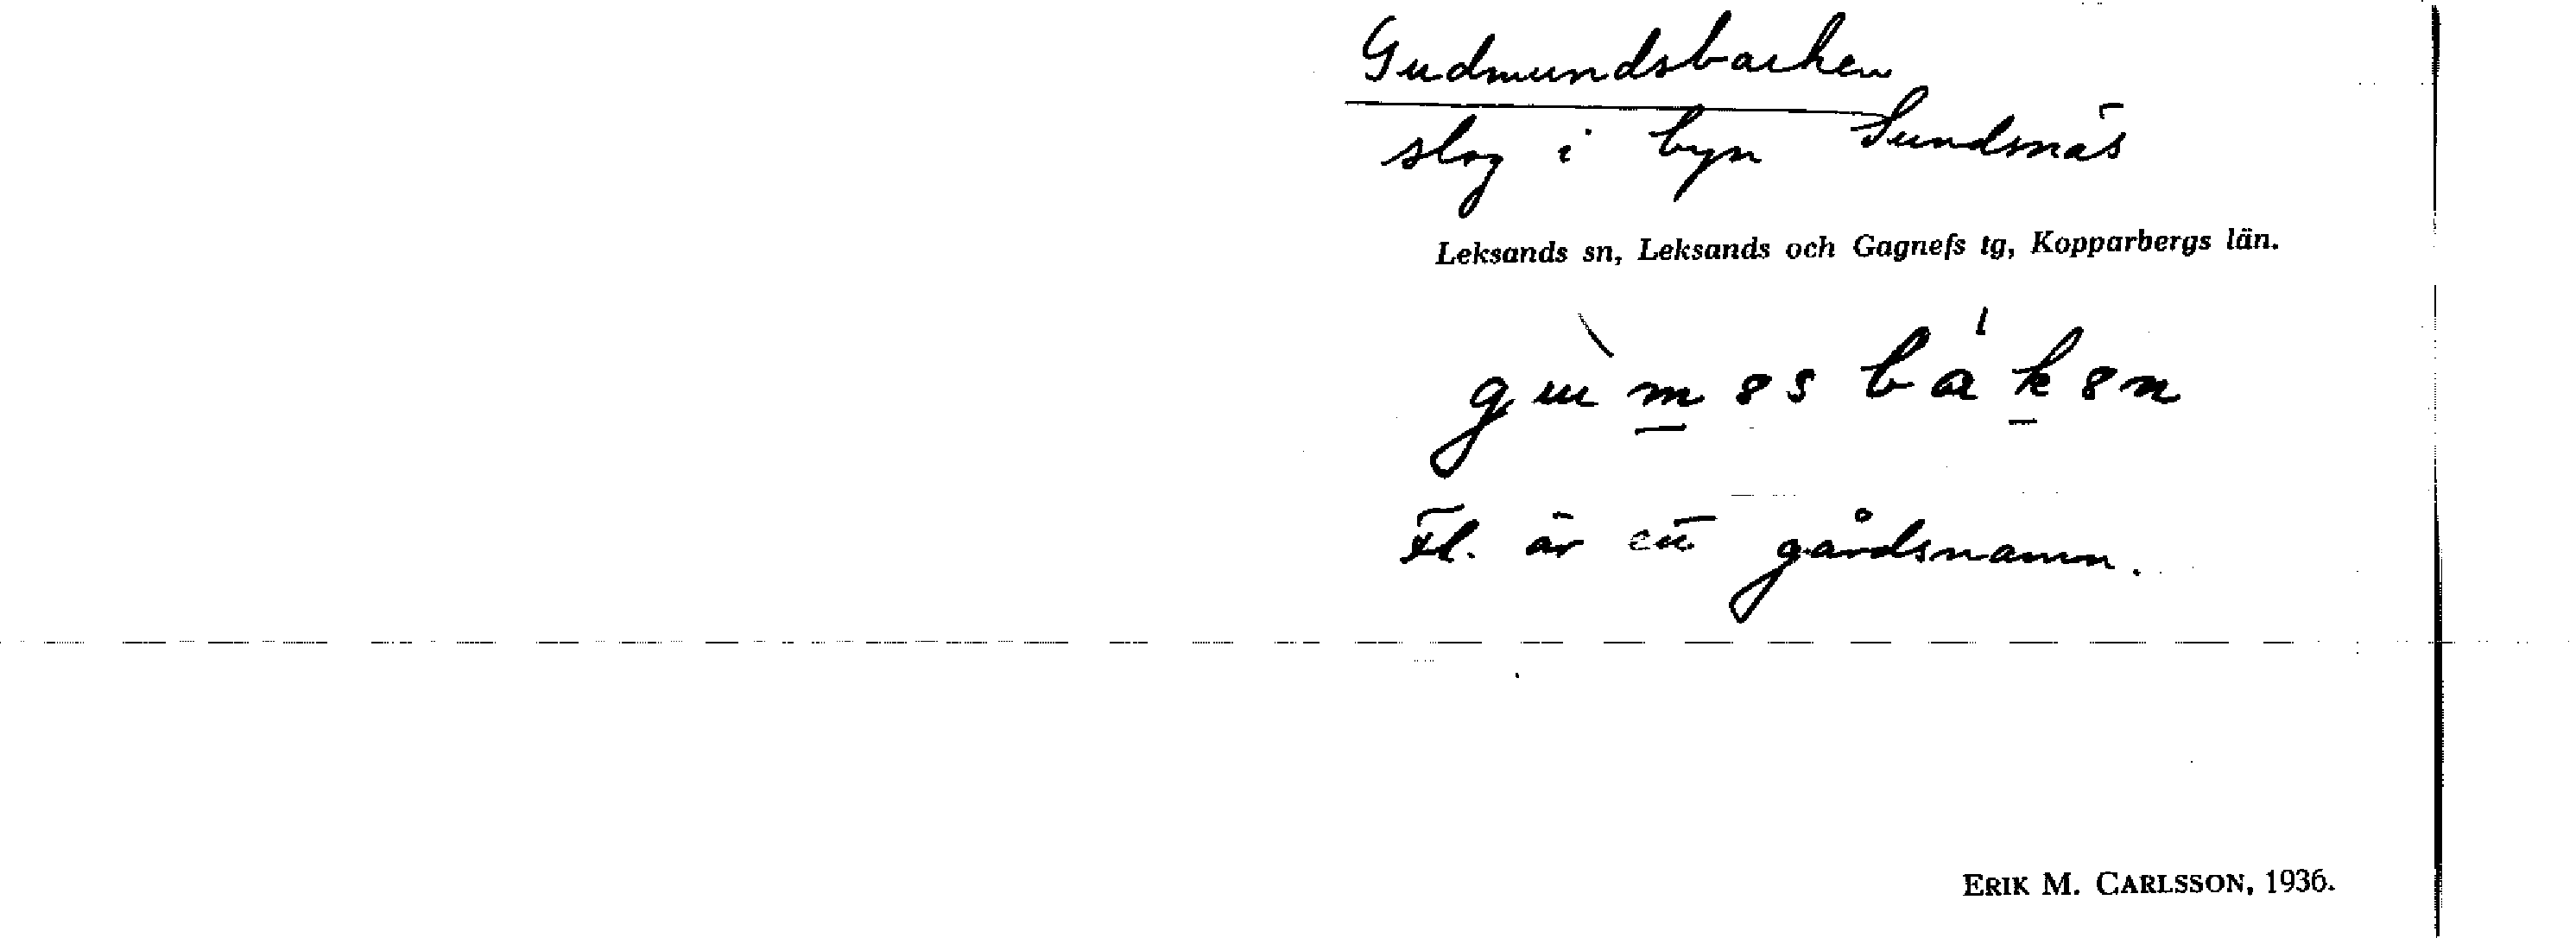 Gudmundsbacken
slog i byn Sundsnäs
Leksands sn, Leksands och Gagnefs tg, Kopparbergs län.
Fl. är ett gårdsnamn.
ERIK M. CARLSSON, 1936.